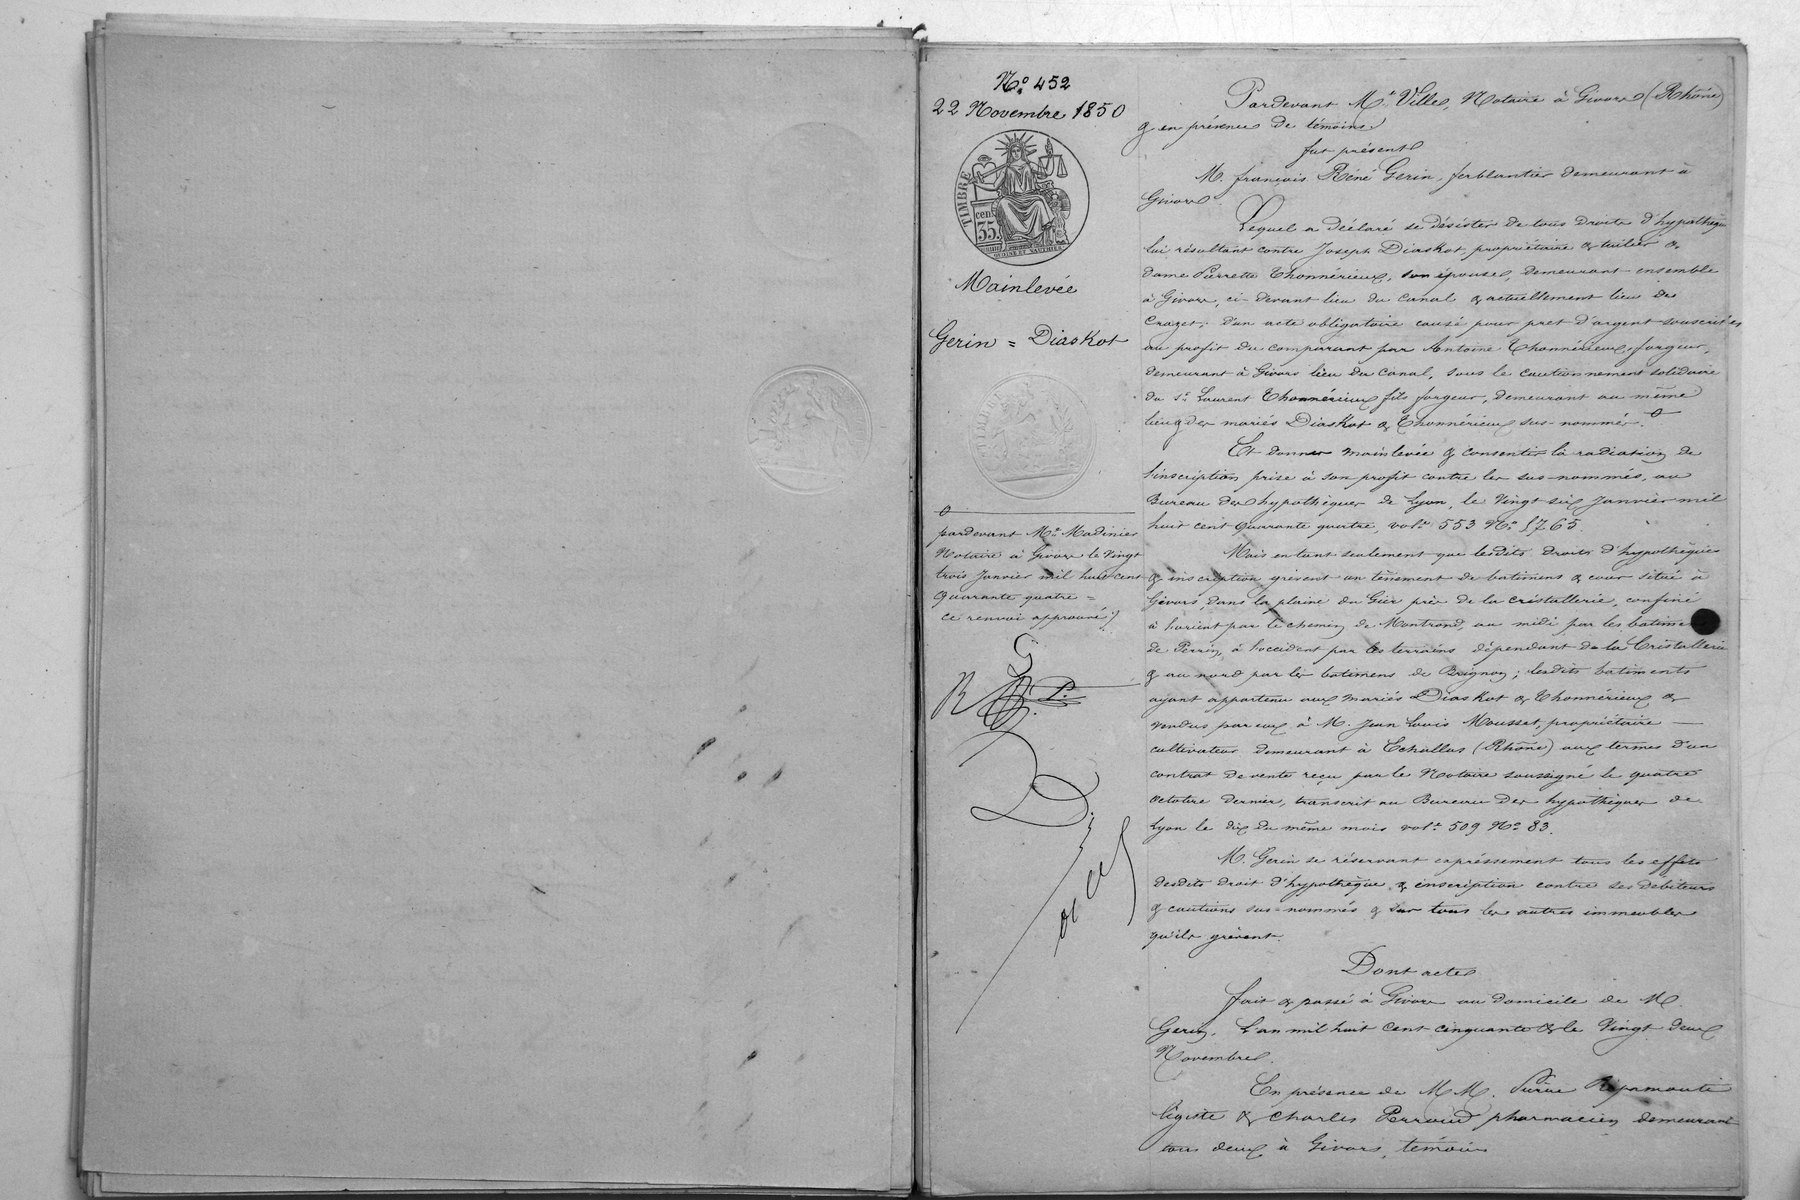 No. 452
22 Novembre 1850
TIMBRE
cen.
35.
OUDINE ET GAUTHIER
Mainlevée
Gerin = Diaskot
pardevant Me. Madinier
Notaire à Givors le Vingt
trois Janvier mil huit cent
Quarante quatre =
ce renvoi approuvé./
Pardevant Me. Ville, Notaire à Givors (Rhône)
& en présence de témoins.
fut présent
M. françois Réné Gerin, ferblantier demeurant à
Givors.
Lequel a déclaré se désister de tous droits d'hypothèque
lui résultant contre Joseph Diaskot, propriétaire & tuilier &
dame Pierrette Thonnérieux, son épouse, demeurant ensemble
à Givors, ci-devant lieu du Canal & actuellement lieu de
d'un acte obligatoire causé pour pret d'argent souscrit
au profit du comparant par Antoine Thonnérieux, forgeur,
demeurant à Givors lieu du Canal, sous le cautionnement solidaire
du sr. Laurent Thonnérieux fils forgeur, demeurant au même
lieu & des mariés Diaskot & Thonnérieux sus-nommés.
Et donner mainlevée & consentir la radiation de
l'inscription prise à son profit contre les sus-nommés, au
Bureau des hypothèques de Lyon, le Vingt six Janvier mil
huit cent Quarante quatre, vole. 553 No. 1765.
Mais en tant seulement que lesdits Droits d'hypothèques
& inscription grèvent un tènement de batimens & cour situé à
Givors, dans la plaine du Gier près de la Cristallerie, confiné
à l'orient par le chemin de Montrond, au midi par les batimens
de Perrin, à l'occident par les terrains dépendant de la Cristallerie
& au nord par les batimens de Brignon; lesdits batiments
ayant appartenu aux mariés Diaskot & Thonnérieux &
vendus par eux à M. Jean Louis Mousset, propriétaire
cultivateur demeurant à Echallas (Rhône) aux termes d'un
contrat de vente reçu par le Notaire soussigné le quatre
octobre dernier, transcrit au Bureau des hypothèques de
Lyon le dix du même mois vole. 509 No. 83.
M. Gerin se réservant expréssement tous les effets
desdits droit d'hypothèque & inscription contre ses débiteurs
& cautions sus-nommés & sur tous les autres immeubles
qu'ils grèvent.
Dont acte
fait & passé à Givors au domicile de M.
Gerin, L'an mil huit cent cinquante & le Vingt deux
Novembre.
En présence de MM. Pierre Ripamonti
& Charles Perroud pharmacien demeurant
tous deux à Givors, témoins